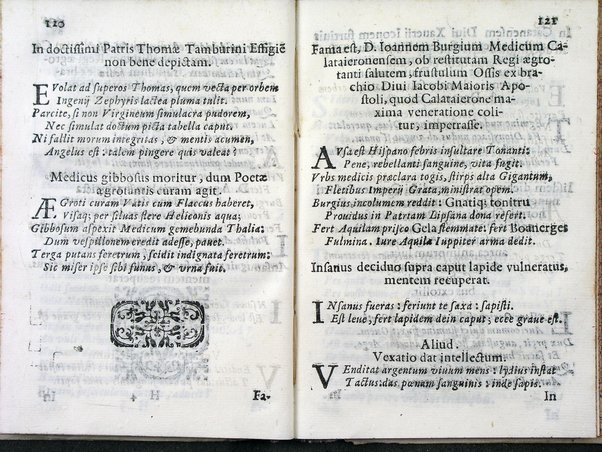 120
In doctissimi Patris Thomæ Tamburini Effigiē
non bene depictam.
EVolat ad superos Thomas, quem vecta per orbem
Ingenij Zephyris lactea pluma tulit.
Parcite, si non Virgineum simulacra pudorem,
Nec simulat doctum picta tabella caput.
Ni fallit morum integritas, & mentis acumen,
Angelus est: talem pingere quis valeat?
Medicus gibbosus moritur, dum Poetæ
ægrotantis curam agit.
ÆGroti curam Vatis cum Flaccus haberet,
Visaq; per siluas stere Heliconis aqua;
Gibbosum aspexit Medicum gemebunda Thalia:
Dum vespillonem credit adesse, pauet.
Terga putans feretrum, scidit indignata feretrum:
Sic miser ipse sibi funus, & vrna fuit.
H 4
Fa-
121
Fama est, D. Ioannem Burgium Medicum Ca-
lataieronensem, ob restitutam Regi ægro-
tanti salutem, frustulum Ossis ex bra-
chio Diui Iacobi Maioris Apo-
stoli, quod Calataierone ma-
xima veneratione coli-
tur, impetrasse.
AVsa est Hispano febris insultare Tonanti:
Pene, rebellanti sanguine, vita fugit.
Vrbs medicis præclara togis, stirps alta Gigantum,
Fletibus Imperij Grata, ministrat opem.
Burgius incolumem reddit: Gnatiq; tonitru
Prouidus in Patriam Lipsana dona refert.
Fert Aquilam prisco Gela stemmate: fert Boanerges
Fulmina. Iure Aquila Iuppiter arma dedit.
Insanus deciduo supra caput lapide vulneratus,
mentem recuperat.
INsanus fueras: feriunt te saxa: sapisti.
Est leue, fert lapidem dein caput; ecce graue est.
Aliud.
Vexatio dat intellectum.
VEnditat argentum viuum mens: lydius instat
Tactus: das pœnam sanguinis: inde sapis.
In